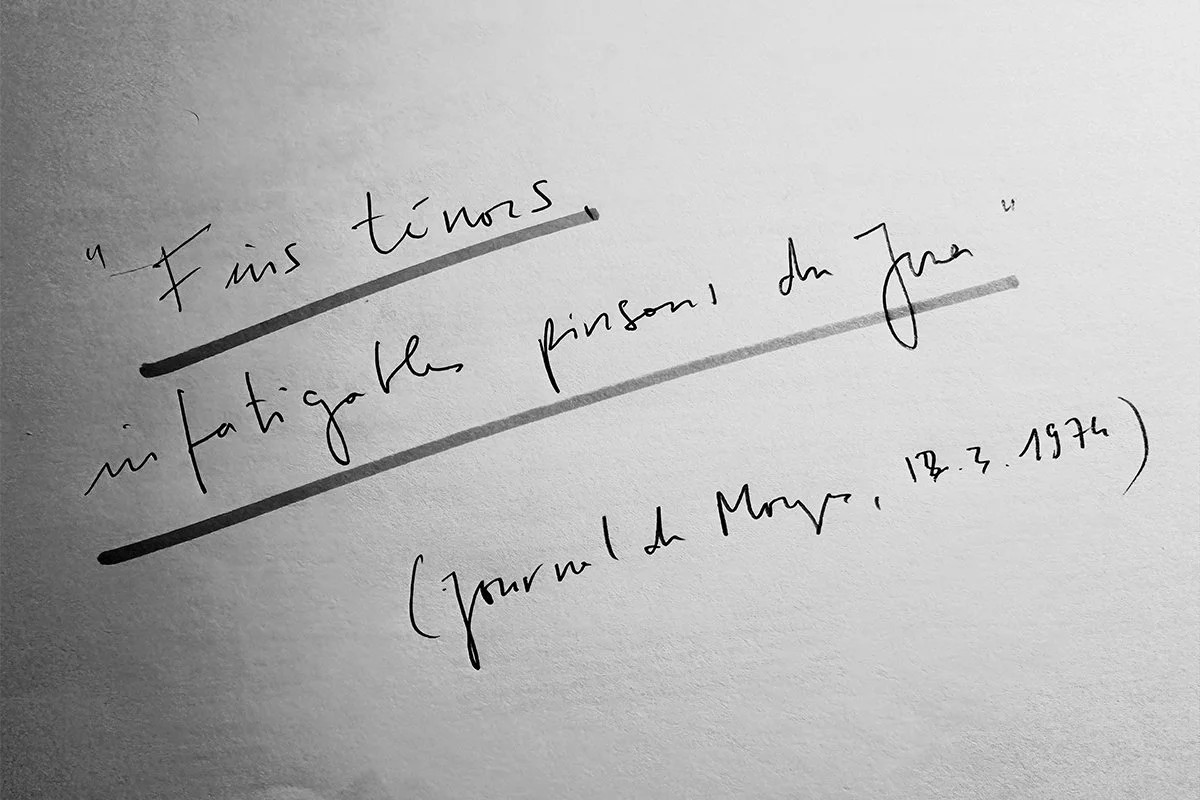 "Fins ténors,
infatigables pinsons du Jura"
(Journal de Morges, 18.3.1974)